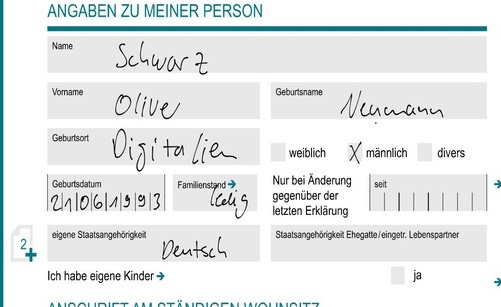 ANGABEN ZU MEINER PERSON
Name
Schwarz
Vorname
Olive
Geburtsname
Neumann
Geburtsort
Digitalien
weiblich X männlich divers
Geburtsdatum
21061993
Familienstand →
ledig
Nur bei Änderung
gegenüber der
letzten Erklärung
seit
eigene Staatsangehörigkeit
Deutsch
Staatsangehörigkeit Ehegatte/eingetr. Lebenspartner
2
Ich habe eigene Kinder →
ja
ANSCHRIFT AM STÄNDIGEN WOHNSITZ